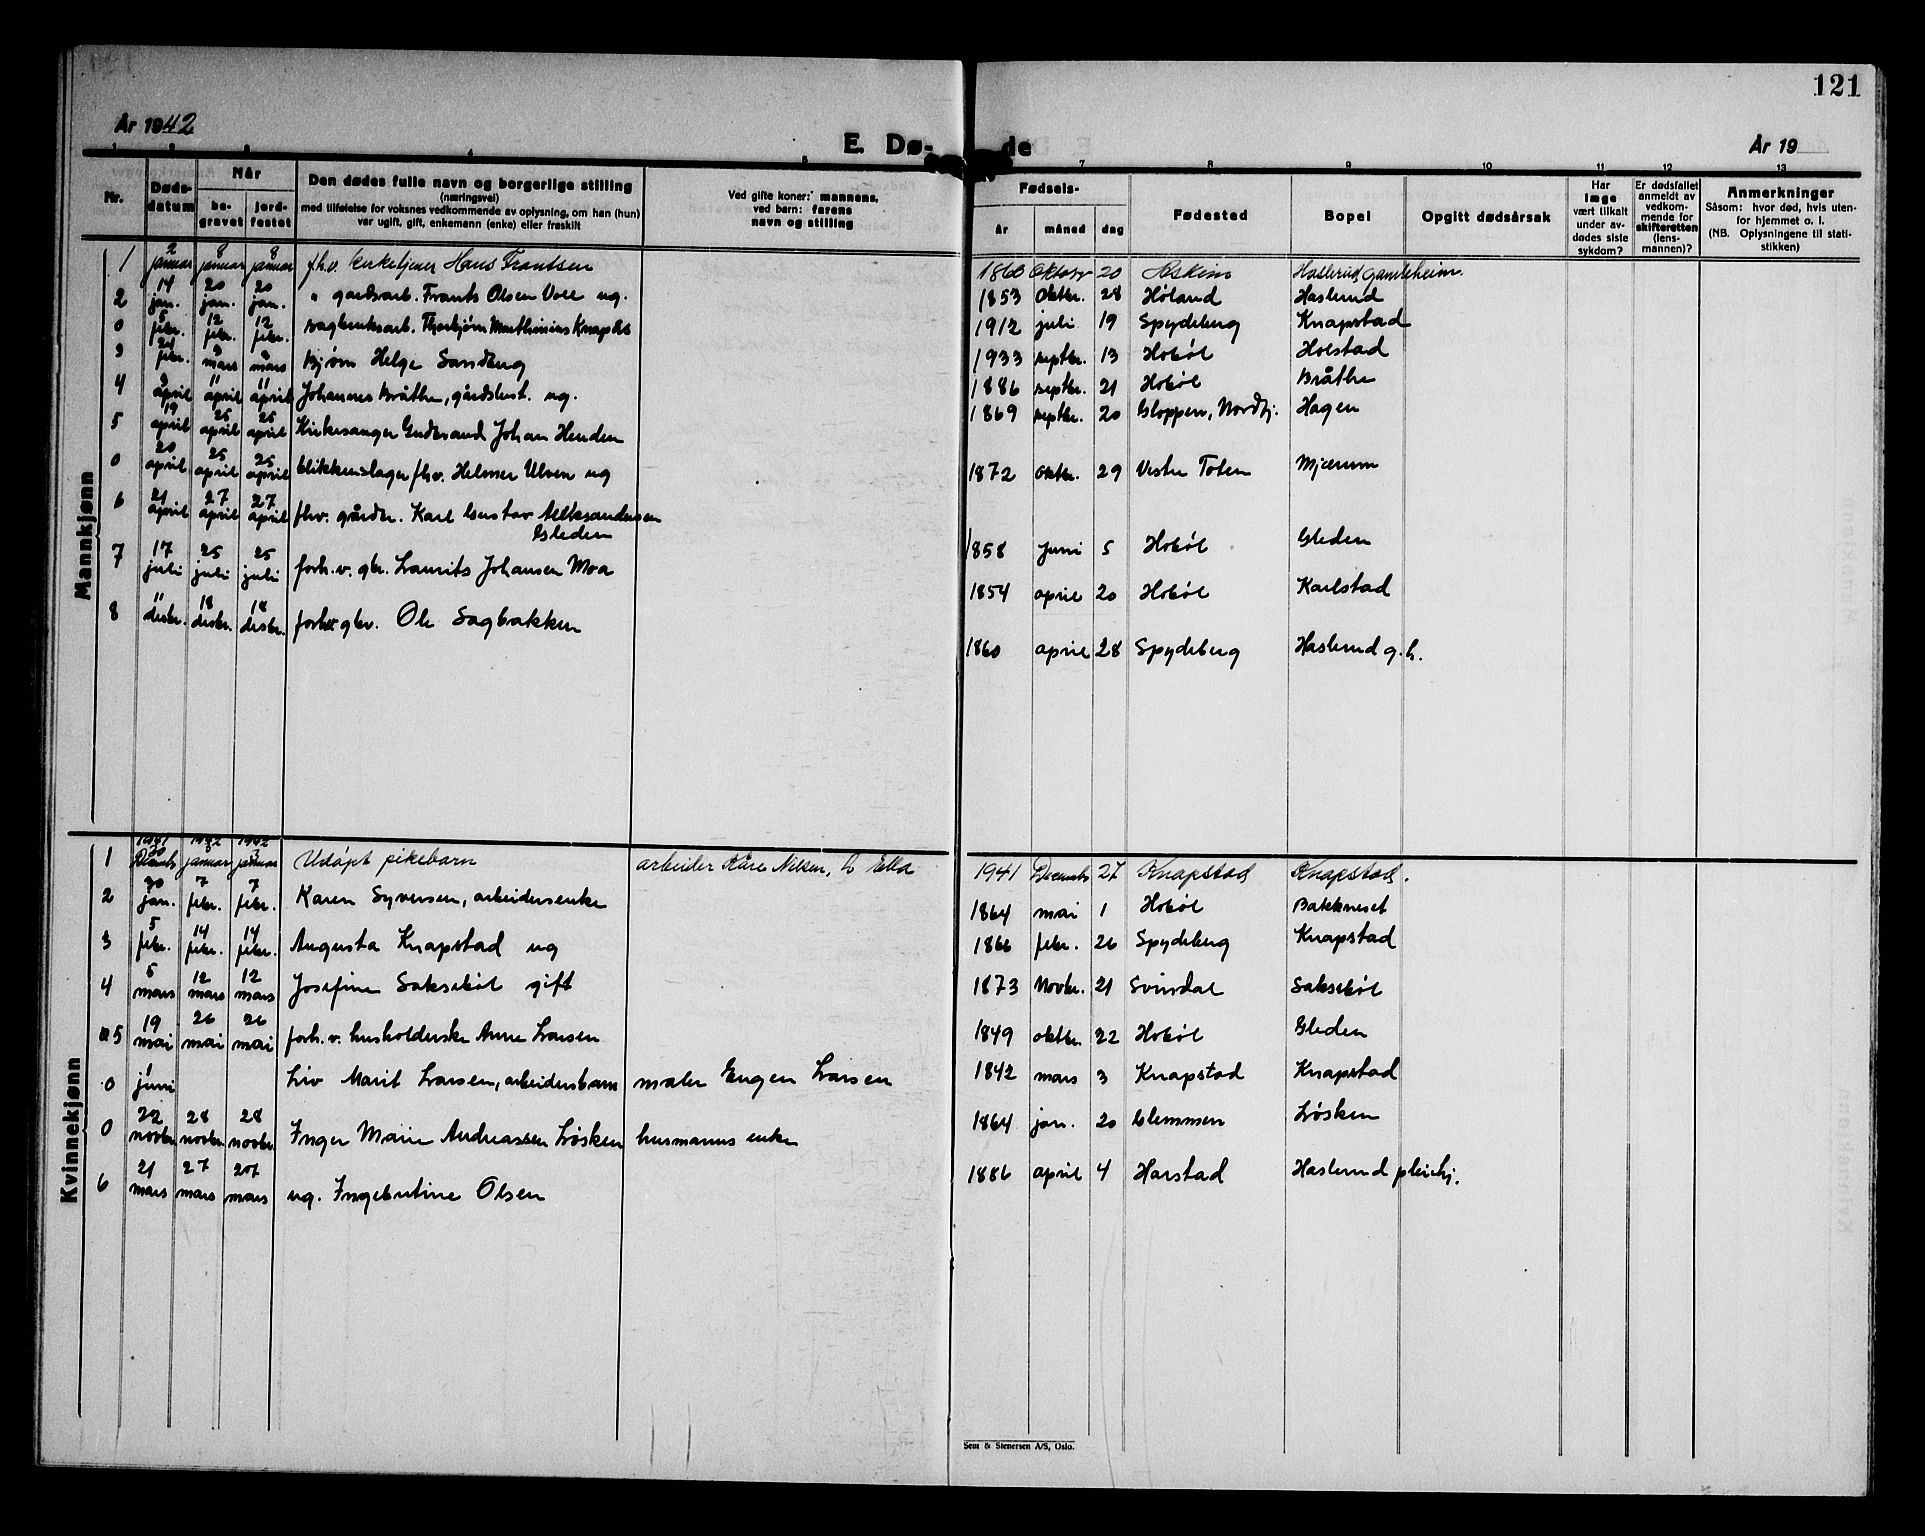 121
År 1942
E. Dø-
de
År 19
1 2 3 4 5 7 8 9 10 11 12 13
Nr.
Døds-
datum
Når
be-
gravet
jord-
festet
Den dødes fulle navn og borgerlige stilling
(næringsvei)
med tilføielse for voksnes vedkommende av oplysning, om han (hun)
var ugift, gift, enkemann (enke) eller fraskilt
Ved gifte koner: mannens,
ved barn: farens
navn og stilling
Fødsels-
år måned dag
Fødested
Bopel
Opgitt dødsårsak
Har
læge
vært tilkalt
under av-
dødes siste
sykdom?
Er dødsfallet
anmeldt av
vedkom-
mende for
skifteretten
(lens-
mannen)?
Anmerkninger
Såsom: hvor død, hvis uten-
for hjemmet o. l.
(NB. Oplysningene til stati-
stikken)
Mannkjønn
1 2 januar 8 januar 8 januar f.h.v. kirketjener Hans Frantsen 1860 Oktober 20 Askim Haslerud gamleheim.
2 14 jan. 20 jan. 20 jan. " gardsarb. Frants Olsen Voll ug. 1853 Oktbr. 28 Høland Haslerud
0 5 febr. 12 febr. 12 febr. sagbruksarb. Thorbjørn Marthinius 1912 juli 19 Spydeberg Knapstad
3 24 febr. mars mars Bjørn Helge Sandberg 1933 septbr. 13 Hobøl Holstad
4 april 11 april 11 april Johannes Bråthe, gårdsbest. ug. 1886 septbr. 21 Hobøl Bråthe
5 19 april 25 april 25 april Kirkesanger Gudbrand Johan Henden 1869 septbr. 20 Gloppen, Nordfj. Hagen
0 20 april 25 april 25 april blikkenslager fhv. Helmer Ulven ug 1872 Oktbr. 29 Vestre Toten Mjærum
6 21 april 27 april 27 april fhv. gårdbr. Karl Gustav Aleksandersen
Gleden 1858 Juni 5 Hobøl Gleden
7 17 juli 25 juli 25 juli forh. v. gbr. Laurits Johansen Moa 1854 april 20 Hobøl Karlstad
8 11 desbr. 18 desbr. 18 desbr. gbr. Ole Sagbakken 1860 april 28 Spydeberg Haslerud g.h.
Kvinnekjønn
1 1941 30 Decemb 1942 januar 1942 januar Udøpt pikebarn arbeider Kåre Nilsen, Ella 1941 Decemb 27 Knapstad Knapstad.
2 30 jan. 7 febr. 7 febr. Karen Syversen, arbeidersenke 1864 mai 1 Hobøl Bakkneset
3 5 febr. 14 febr. 14 febr. Augusta Knapstad ug 1866 febr. 26 Spydeberg Knapstad
4 5 mars 12 mars 12 mars Josefine Saksebøl gift 1873 Novbr. 21 Svinndal Saksebøl
5 19 mai 26 mai 26 mai forh. v. husholderske Anne Larsen 1849 oktbr. 22 Hobøl Gleden
0 1 juni Liv Marit Larsen, arbeidersbarn maler Eugen Larsen 1842 mars 3 Knapstad Knapstad
0 22 novbr. 28 novbr. 28 novbr. Inger Marie Andreassen Løsken husmanns enke 1864 jan. 20 Glemmen Løsken
6 21 mars 27 mars 27 mars ug. Ingebertine Olsen 1886 april 4 Harstad Haslerud pleiehj.
Sem & Stenersen A/S, Oslo.